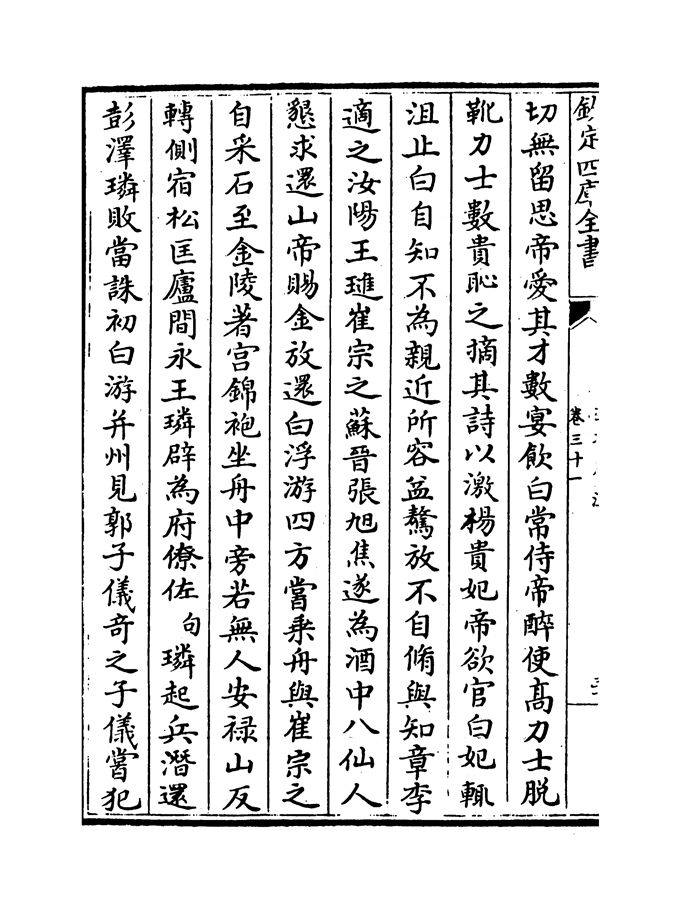 欽定四庫全書
卷三十一
切無留思帝愛其才數宴飲白常侍帝醉使髙力士脱
靴力士數貴恥之摘其詩以激楊貴妃帝欲官白妃輒
沮止白自知不為親近所容益驁放不自脩與知章李
適之汝陽王璡崔宗之蘇晉張旭焦遂為酒中八仙人
懇求還山帝賜金放還白浮游四方嘗乗舟與崔宗之
自采石至金陵著宫錦袍坐舟中旁若無人安禄山反
轉側宿松匡廬間永王璘辟為府僚佐句璘起兵潛還
彭澤璘敗當誅初白游并州見郭子儀竒之子儀嘗犯